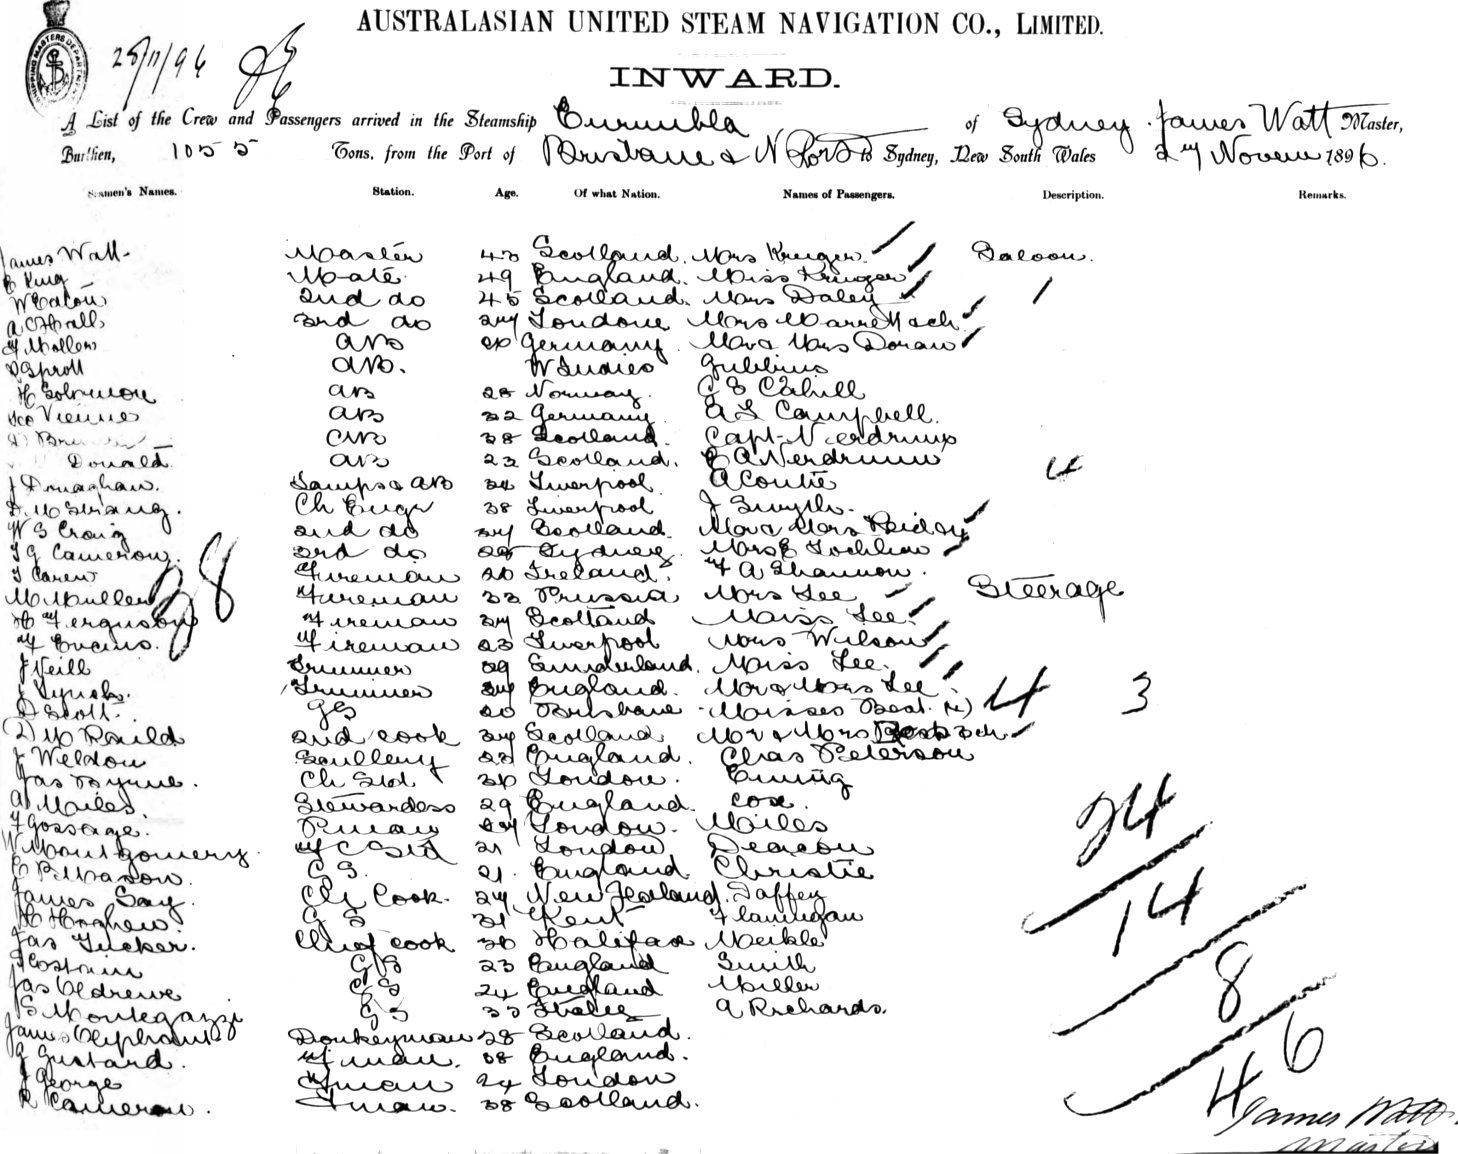 AUSTRALASIAN UNITED STEAM NAVIGATION CO., LIMITED.
SHIPPING MASTERS DEPARTMENT
28/11/96
INWARD.
A List of the Crew and Passengers arrived in the Steamship Eurimbla of Sydney James Watt Master,
Burthen, 1055 Tons, from the Port of Brisbane & N Ports to Sydney, New South Wales 27 Novem 1896.
Seamen's Names. Station. Age. Of what Nation. Names of Passengers. Description. Remarks.
James Watt Master 43 Scotland. Mrs Kruger Saloon.
E King Mate 49 England. Miss Kruger
W Eaton 2nd do 45 Scotland. Mrs Daley 1
A C Hall 3rd do 27 London Mrs
F Moller AB Germany Mr & Mrs Doran
D Sprott AB. W Indies Gubbins
H AB 28 Norway. C E Cahill
Geo Vienne AB 22 Germany A L Campbell.
AB 38 Scotland. Capt Nierdrum
Donald AB 23 Scotland. E A Nerdrum 4
J Donaghan. Lamps & AB 34 Liverpool A Contie
D McStrang. Ch Engr 38 Liverpool J Smyth.
W S Craig 2nd do 37 Scotland. Mr & Mrs Reidy
T G Cameron. 3rd do Sydney Mrs E Lochlin
T Caren Fireman 20 Ireland. F A Shannon.
M Mullen 38 Fireman 33 Prussia Mrs Lee Steerage
H Ferguson Fireman 27 Scotland Miss Lee.
F Fireman 23 Liverpool Mrs Wilson
J Neill Trimmer 29 Sunderland. Miss Lee.
J Lynch. Trimmer England. Mr & Mrs Lee
D Scott. GS 20 Brisbane Misses Best. (2) 4 3
D McPauld 2nd cook 37 Scotland Mr & Mrs Best 3ch
J Weldon Scullery 23 England. Chas Peterson
Jas Byrne. Ch Std 36 London.
A Miles. Stewardess 29 England. Cox.
F Gossage. Pman London. Miles 24
W Montgomery C Std 21 London Deacon
E P Mason. G S. 21. England Christie
James Gay. Ch Cook. 27 New Zealand. Daffey 14
H Hoghen. G S 31 Kent Flannigan
Jas Tucker. Chief cook 36 Halifax Meikle
J Costain GS 23 England Smith 8
Jas GS 24 England Miller
S Montegazzi GS 33 Italy A Richards.
James Oliphant Donkeyman 28 Scotland.
J Gustard. Fman. 38 England. 46
J George Fman 24 London
R Cameron. Fman. 38 Scotland.
James Watt
Master